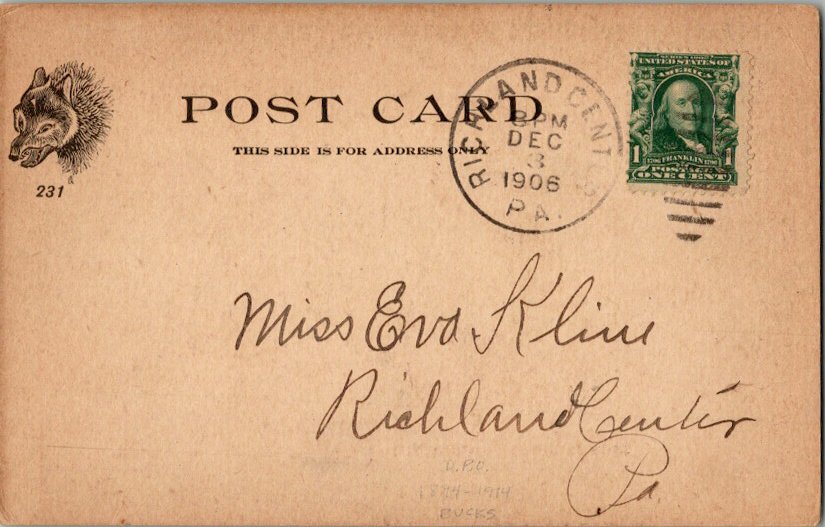 POST CARD
THIS SIDE IS FOR ADDRESS ONLY
231
RICHLAND CENTRE
8 PM
DEC
3
1906
PA.
SERIES 1902
UNITED STATES OF
AMERICA
1 1706 FRANKLIN 1790 1
POSTAGE
ONE CENT
Miss Eva Kline
Richland Center
Pa.
D.P.O.
1874-1914
BUCKS